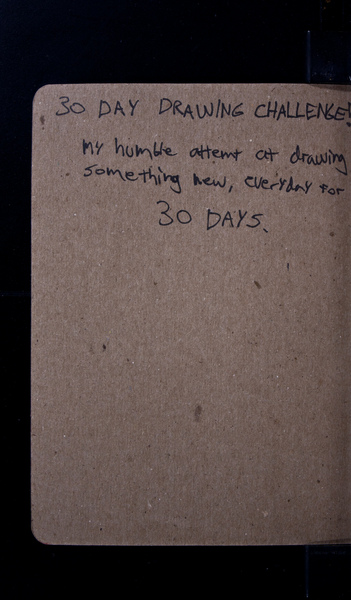 30 DAY DRAWING CHALLENGE!
My humble attemt at drawing
something new, everyday for
30 DAYS.